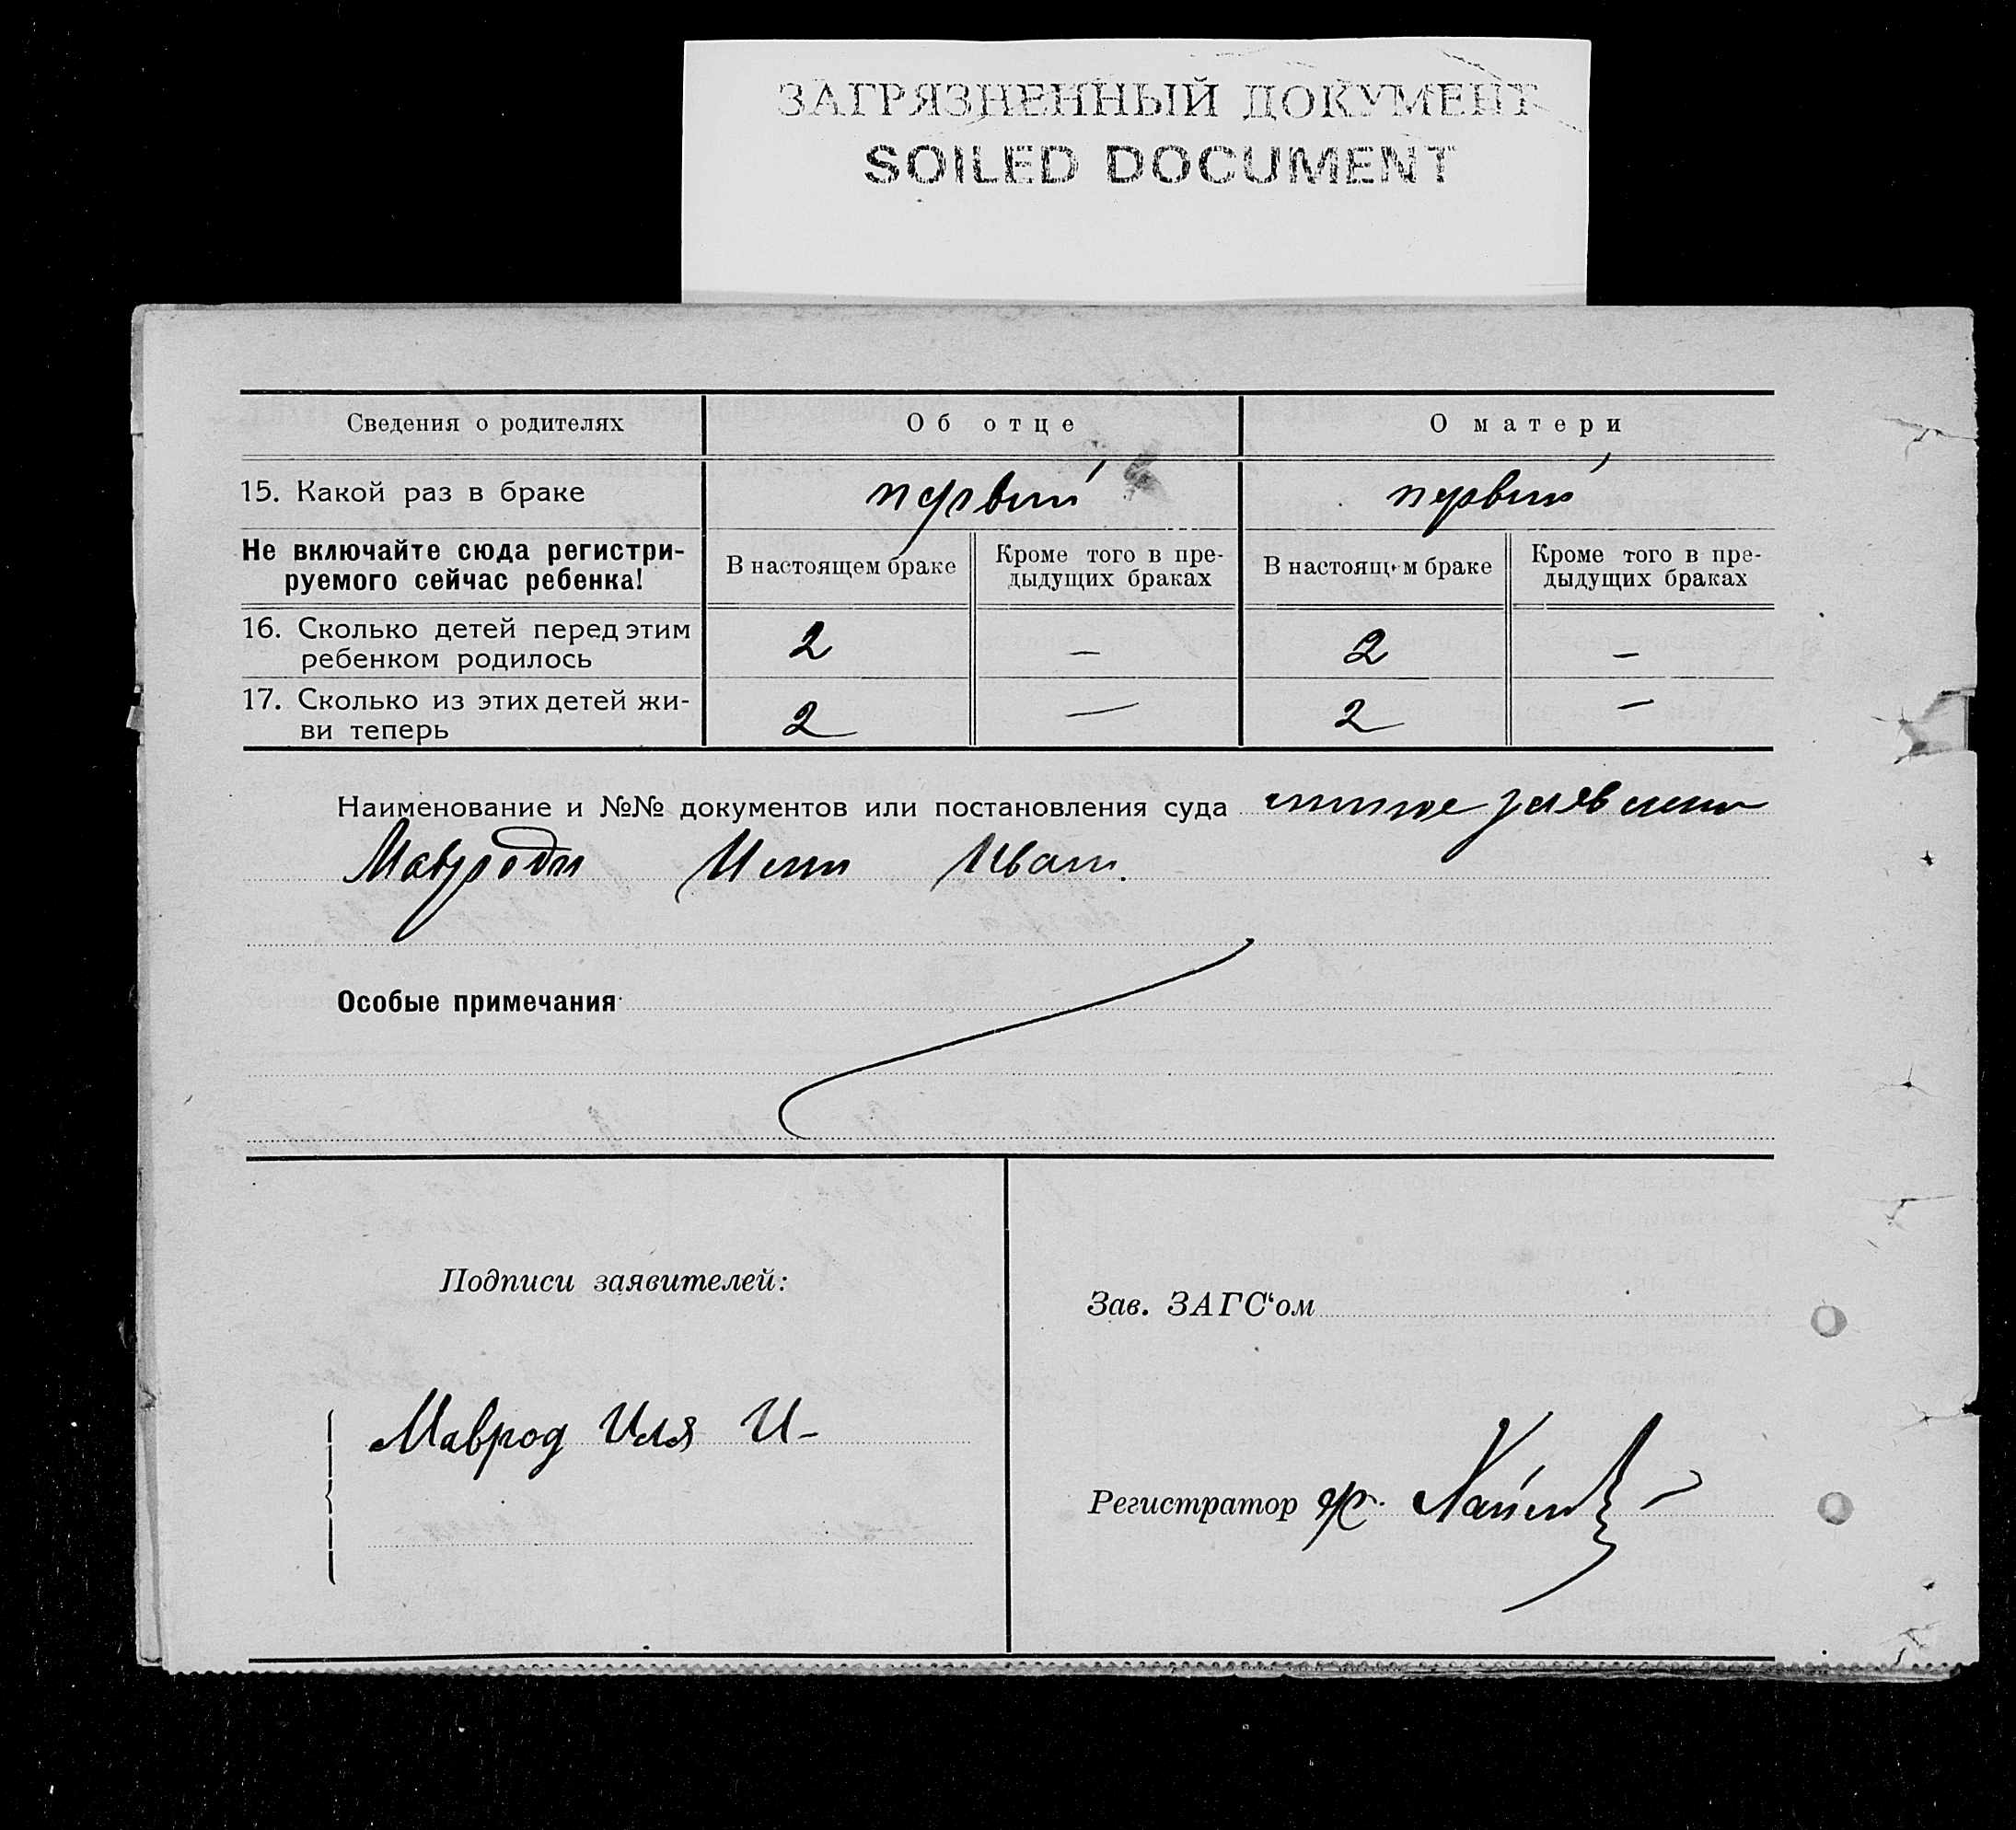 ЗАГРЯЗНЕННЫЙ ДОКУМЕНТ
SOILED DOCUMENT
Сведения о родителях Об отце О матери
15. Какой раз в браке первый первый
Не включайте сюда регистри-
руемого сейчас ребенка!
В настоящем браке
Кроме того в пре-
дыдущих браках
В настоящем браке
Кроме того в пре-
дыдущих браках
16. Сколько детей перед этим
ребенком родилось
2 — 2 —
17. Сколько из этих детей жи-
ви теперь
2 — 2 —
Наименование и №№ документов или постановления суда личное заявление
Мавроди Или Иван.
Особые примечания
Подписи заявителей:
Зав. ЗАГС‘ом
Маврод Иля И-
Регистратор